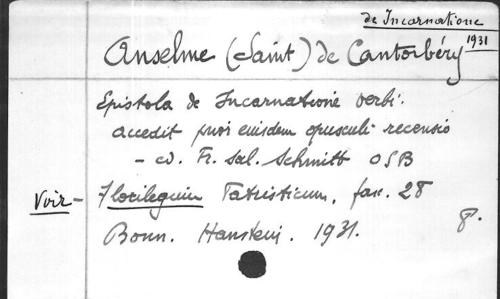 de Incarnatione
1931
Anselme (Saint) de Cantorbéry
Epistola de Incarnatione verbi.
accedit prior eiusdem opusculi recensio
- ed. Fr. Sal. Schmitt OSB
Voir - Florilegium Patristicum, fasc. 28
Bonn. Hanstein. 1931. 8°.